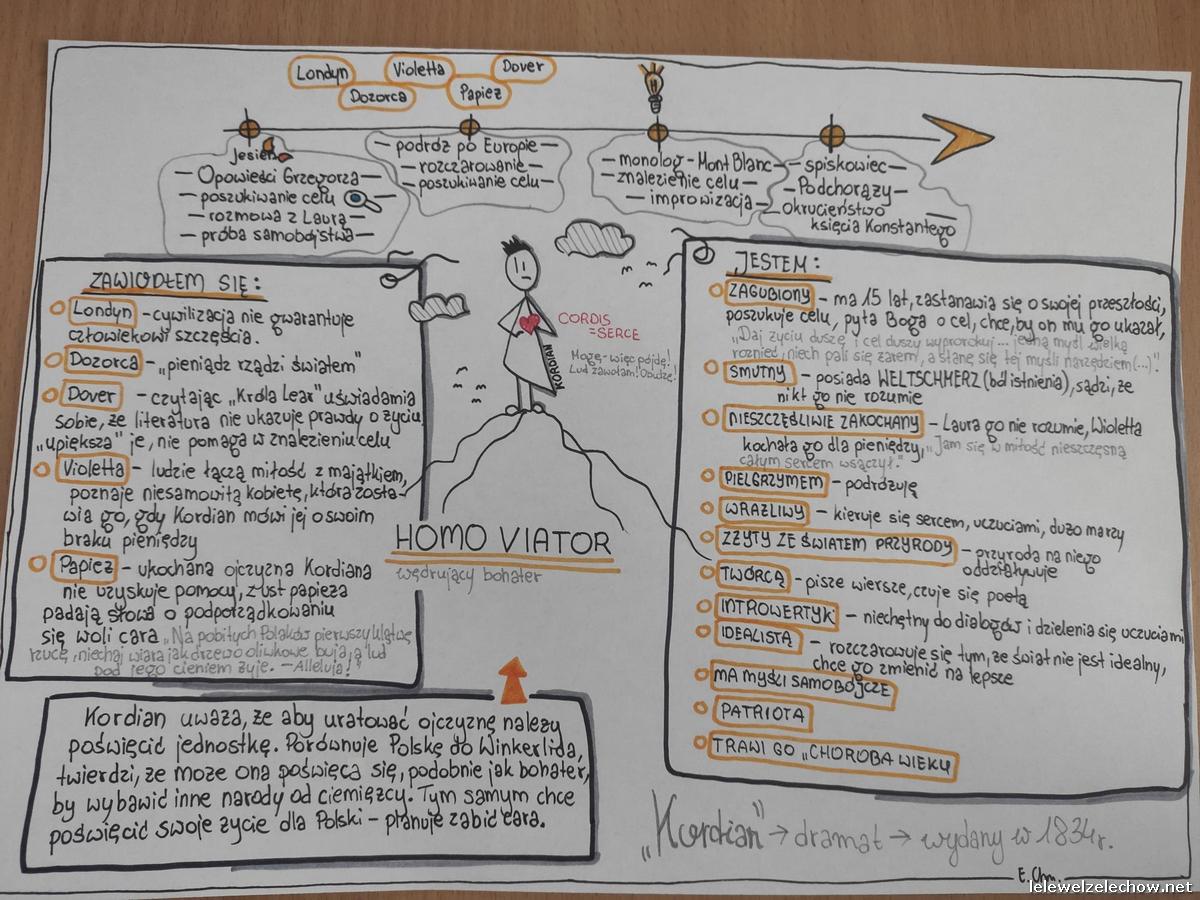 Londyn
Violetta
Dover
Dozorca
Papież
Jesień
– Opowieści Grzegorza –
– poszukiwanie celu
– rozmowa z Laurą –
– próba samobójstwa –
– podróż po Europie –
– rozczarowanie –
– poszukiwanie celu –
– monolog – Mont Blanc –
– znalezienie celu –
– improwizacja –
– spiskowiec –
– Podchorąży –
okrucieństwo
księcia Konstantego
ZAWIODŁEM SIĘ:
Londyn – cywilizacja nie gwarantuje
człowiekowi szczęścia.
Dozorca – „pieniądz rządzi światem"
Dover – czytając „Króla Lear" uświadamia
sobie, że literatura nie ukazuje prawdy o życiu,
„upiększa" je, nie pomaga w znalezieniu celu
Violetta – ludzie łączą miłość z majątkiem,
poznaje niesamowitą kobietę, która zosta-
wia go, gdy Kordian mówi jej o swoim
braku pieniędzy
Papież – ukochana ojczyzna Kordiana
nie uzyskuje pomocy, z ust papieża
padają słowa o podporządkowaniu
się woli cara „Na pobitych Polaków pierwszy klątwę
rzucę, niechaj wiara jak drzewo oliwkowe buja, a lud
pod jego cieniem żyje. – Alleluja!"
CORDIS
= SERCE
KORDIAN
Mogę – więc pójdę!
Lud zawołam! Obudzę!
HOMO VIATOR
wędrujący bohater
JESTEM:
ZAGUBIONY – ma 15 lat, zastanawia się o swojej przeszłości,
poszukuje celu, pyta Boga o cel, chce, by on mu go ukazał,
„Daj życiu duszę i cel duszy wyprorokuj... jedną myśl wielką
roznieć, niech pali się żarem, a stanę się tej myśli narzędziem (...)".
SMUTNY – posiada WELTSCHMERZ (ból istnienia), sądzi, że
nikt go nie rozumie
NIESZCZĘŚLIWIE ZAKOCHANY – Laura go nie rozumie, Wioletta
kochała go dla pieniędzy, „Jam się w miłość nieszczęsną
całym sercem wsączył."
PIELGRZYMEM – podróżuję
WRAŻLIWY – kieruje się sercem, uczuciami, dużo marzy
ZŻYTY ZE ŚWIATEM PRZYRODY – przyroda na niego
oddziaływuje
TWÓRCĄ – pisze wiersze, czuje się poetą
INTROWERTYK – niechętny do dialogów i dzielenia się uczuciami
IDEALISTĄ – rozczarowuje się tym, że świat nie jest idealny,
chce go zmienić na lepsze
MA MYŚLI SAMOBÓJCZE
PATRIOTA
TRAWI GO „CHOROBA WIEKU
Kordian uważa, że aby uratować ojczyznę należy
poświęcić jednostkę. Porównuje Polskę do Winkerlida,
twierdzi, że może ona poświęca się, podobnie jak bohater,
by wybawić inne narody od ciemięzcy. Tym samym chce
poświęcić swoje życie dla Polski – planuje zabić cara.
„Kordian" → dramat → wydany w 1834 r.
E. Chm.
lelewelzelechow.net